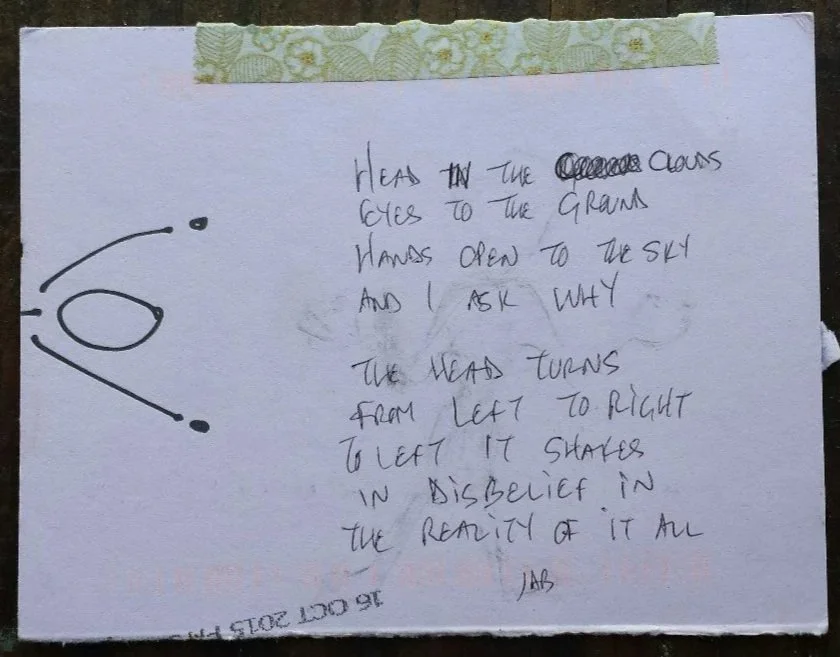 HEAD IN THE CLOUDS
EYES TO THE GROUND
HANDS OPEN TO THE SKY
AND I ASK WHY
THE HEAD TURNS
FROM LEFT TO RIGHT
TO LEFT IT SHAKES
IN DISBELIEF IN
THE REALITY OF IT ALL
JAB
16 OCT 2013